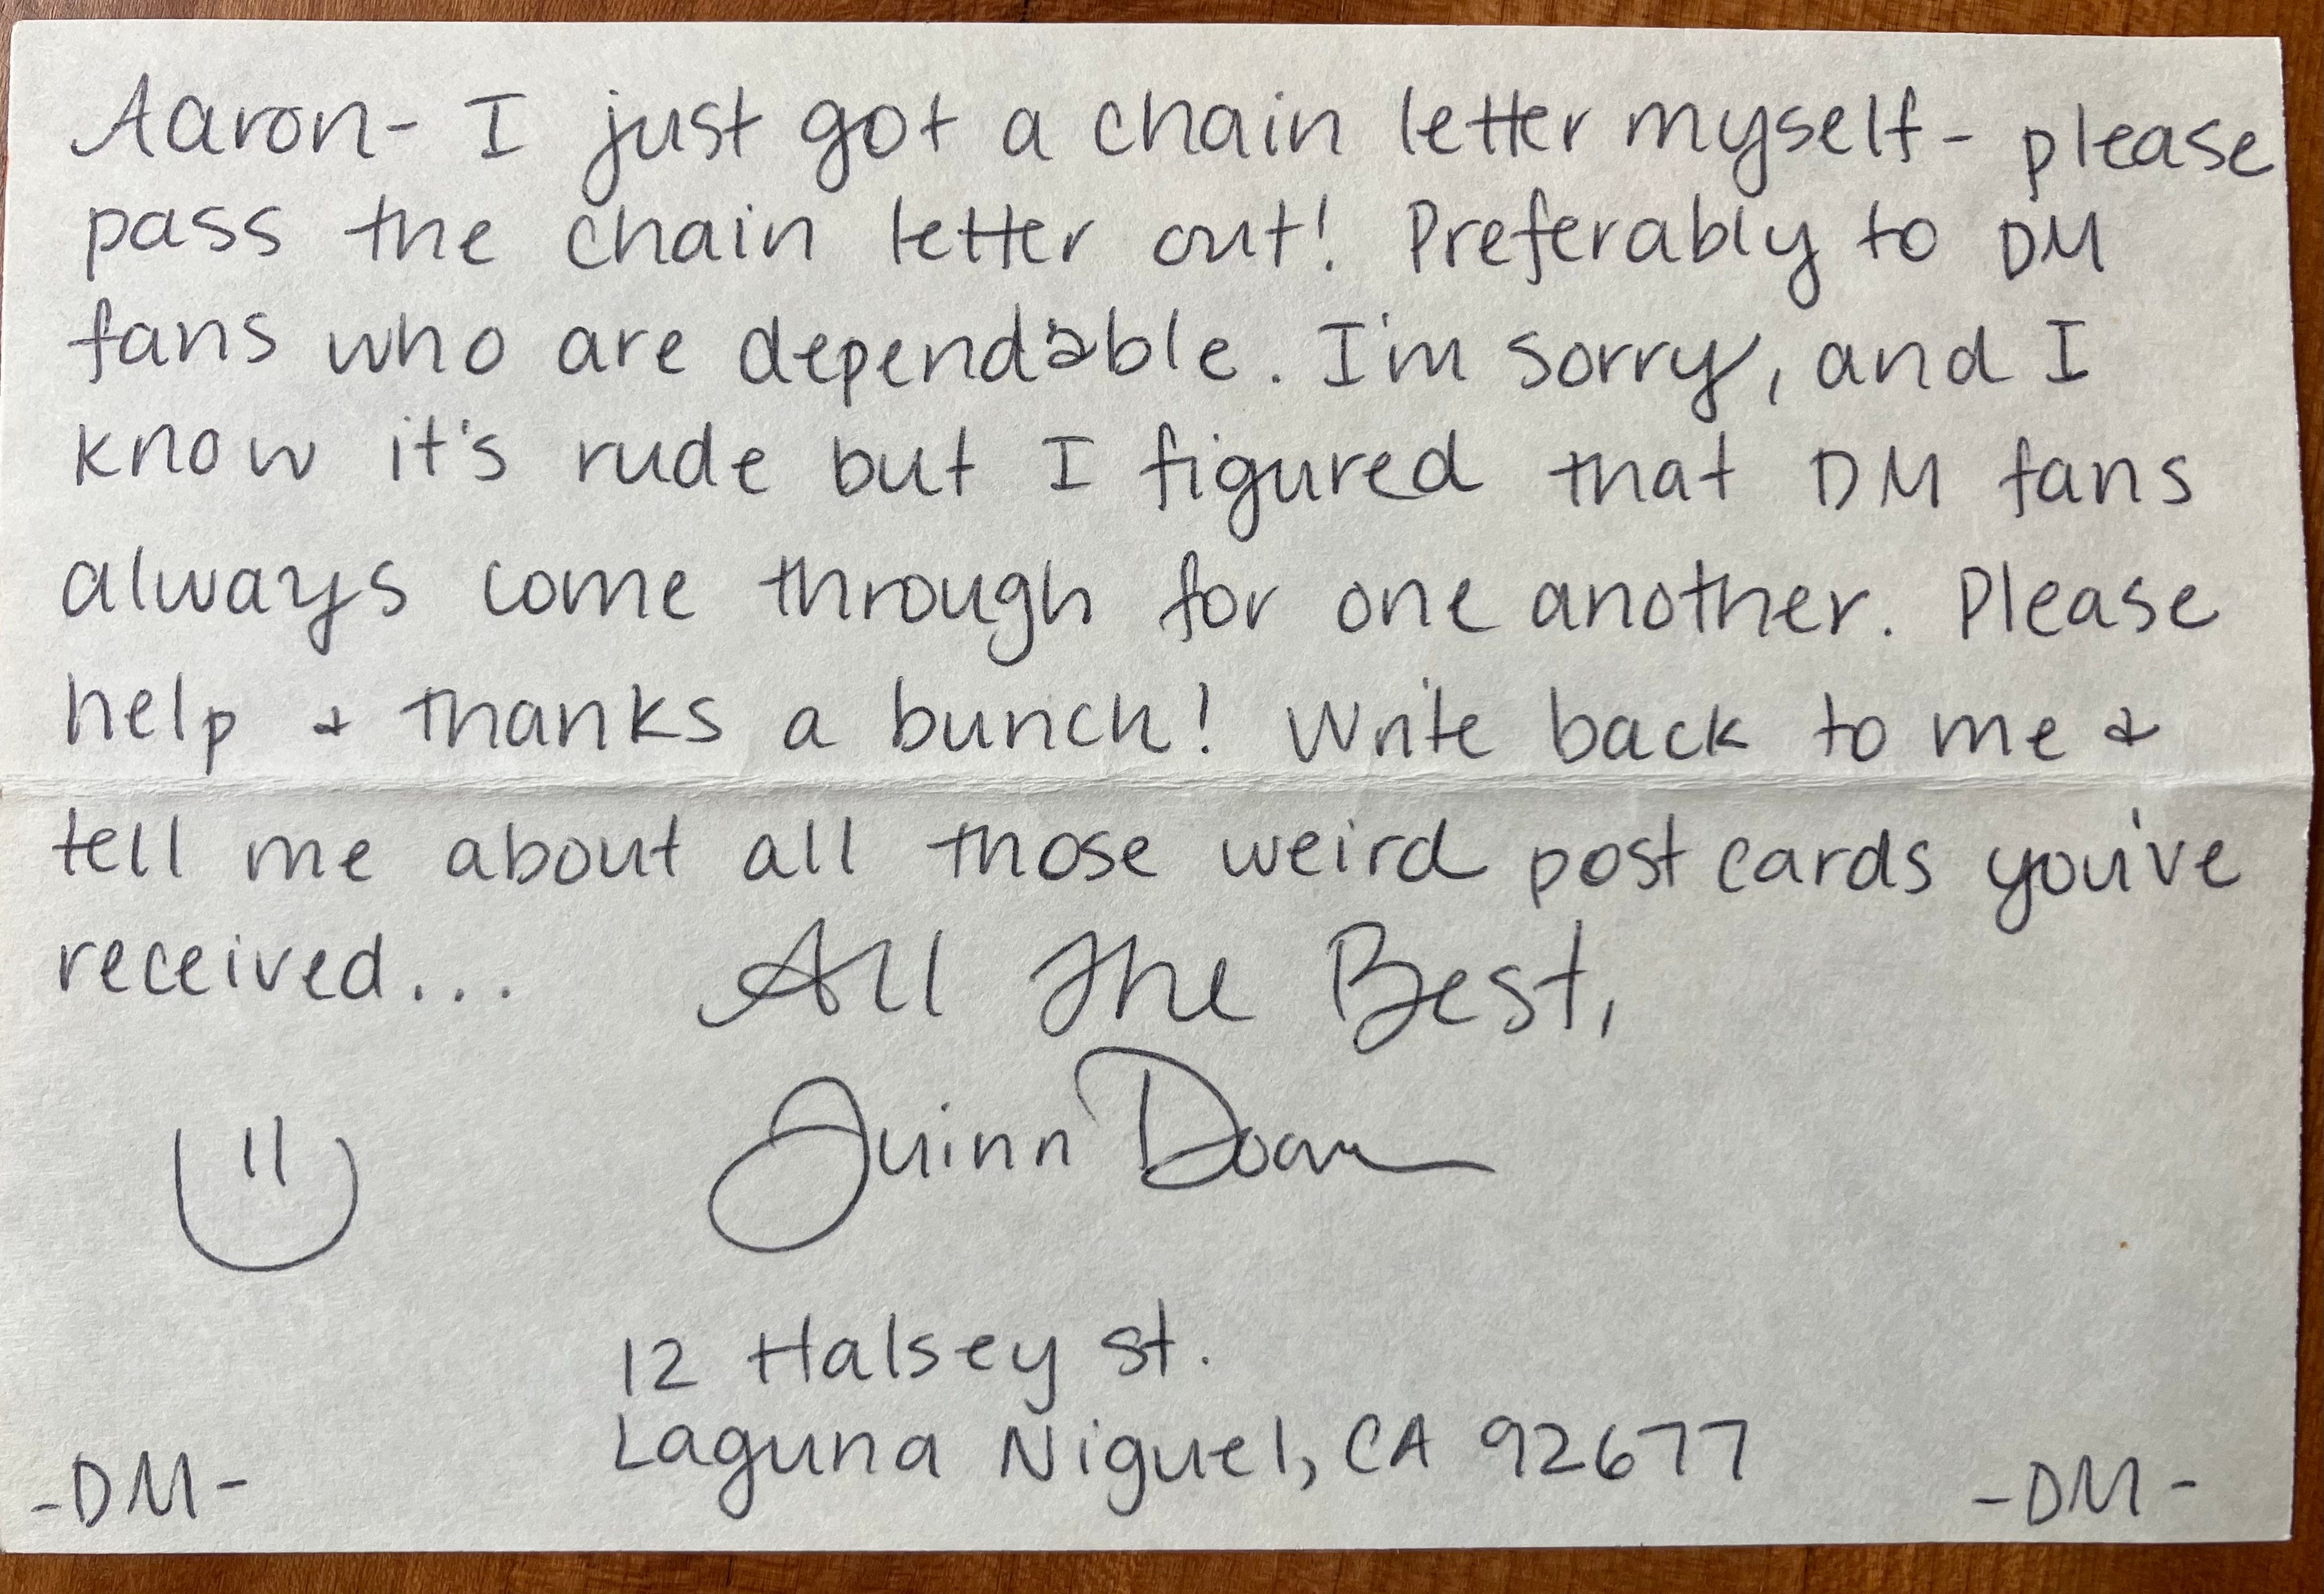 Aaron- I just got a chain letter myself - please
pass the chain letter out! Preferably to DM
fans who are dependable. I'm sorry, and I
know it's rude but I figured that DM fans
always come through for one another. Please
help & thanks a bunch! Write back to me &
tell me about all those weird post cards you've
received... All the Best,
Quinn
12 Halsey St.
Laguna Niguel, CA 92677
-DM- -DM-